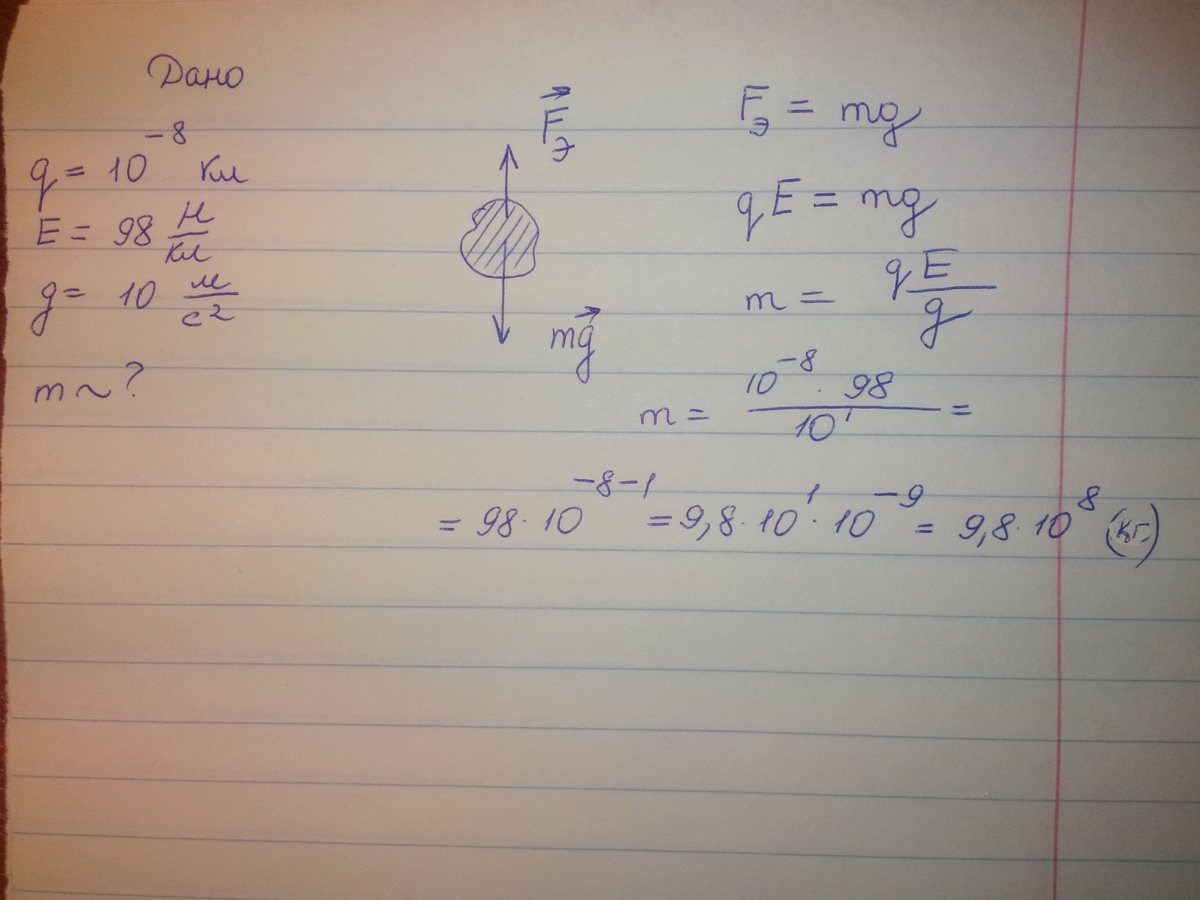 Дано
q = 10^-8 Кл
E = 98 Н/Кл
g = 10 м/с²
m ~ ?
F⃗э
mg⃗
Fэ = mg
qE = mg
m = qE/g
m = 10^-8 · 98 / 10^1 =
= 98 · 10^-8-1 = 9,8 · 10^1 · 10^-9 = 9,8 · 10^8 (кг.)